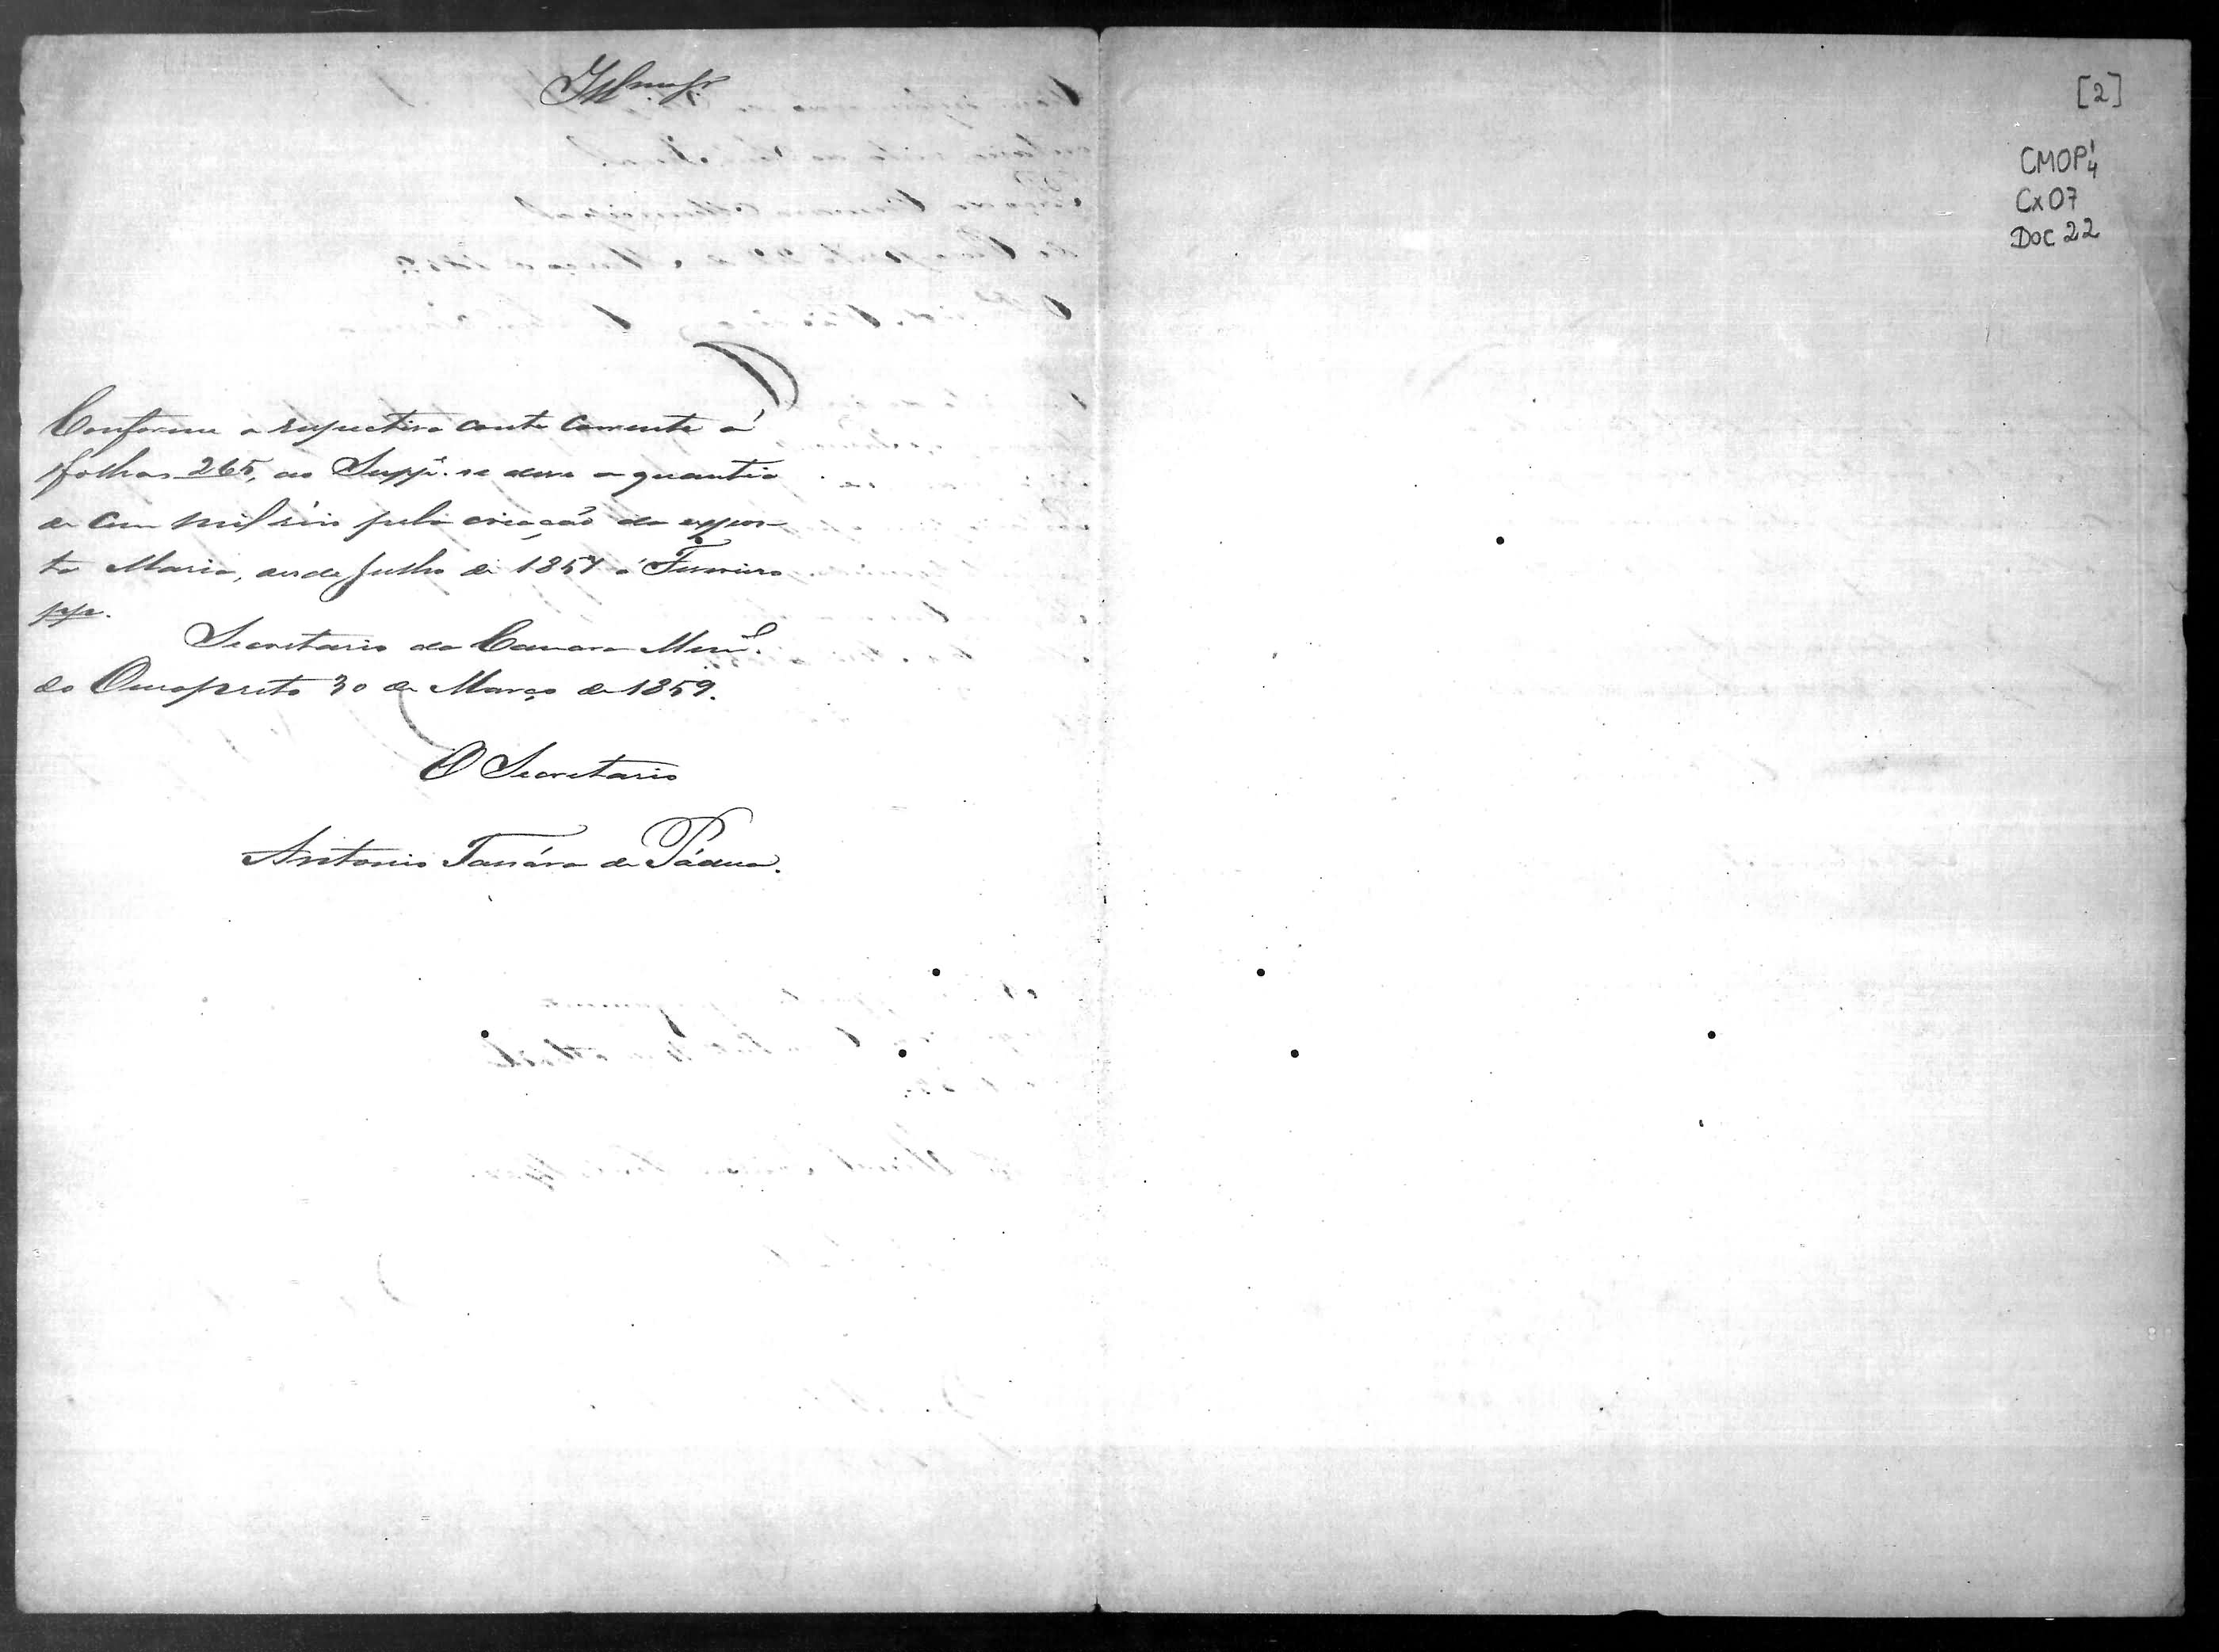 Illmos Srs.
Conforme a respectiva conta corrente á
folhas 265, ao Suppe. se deve a quantia
de Cem mil réis pela criação da expos-
ta Maria, desde Julho de 1857 á Fevereiro
pp.
Secretaria da Camara Mun.al
do Ouropreto 30 de Março de 1859.
O Secretario
Antonio de Pádua.
[2]
CMOP 1/4
Cx 07
Doc 22